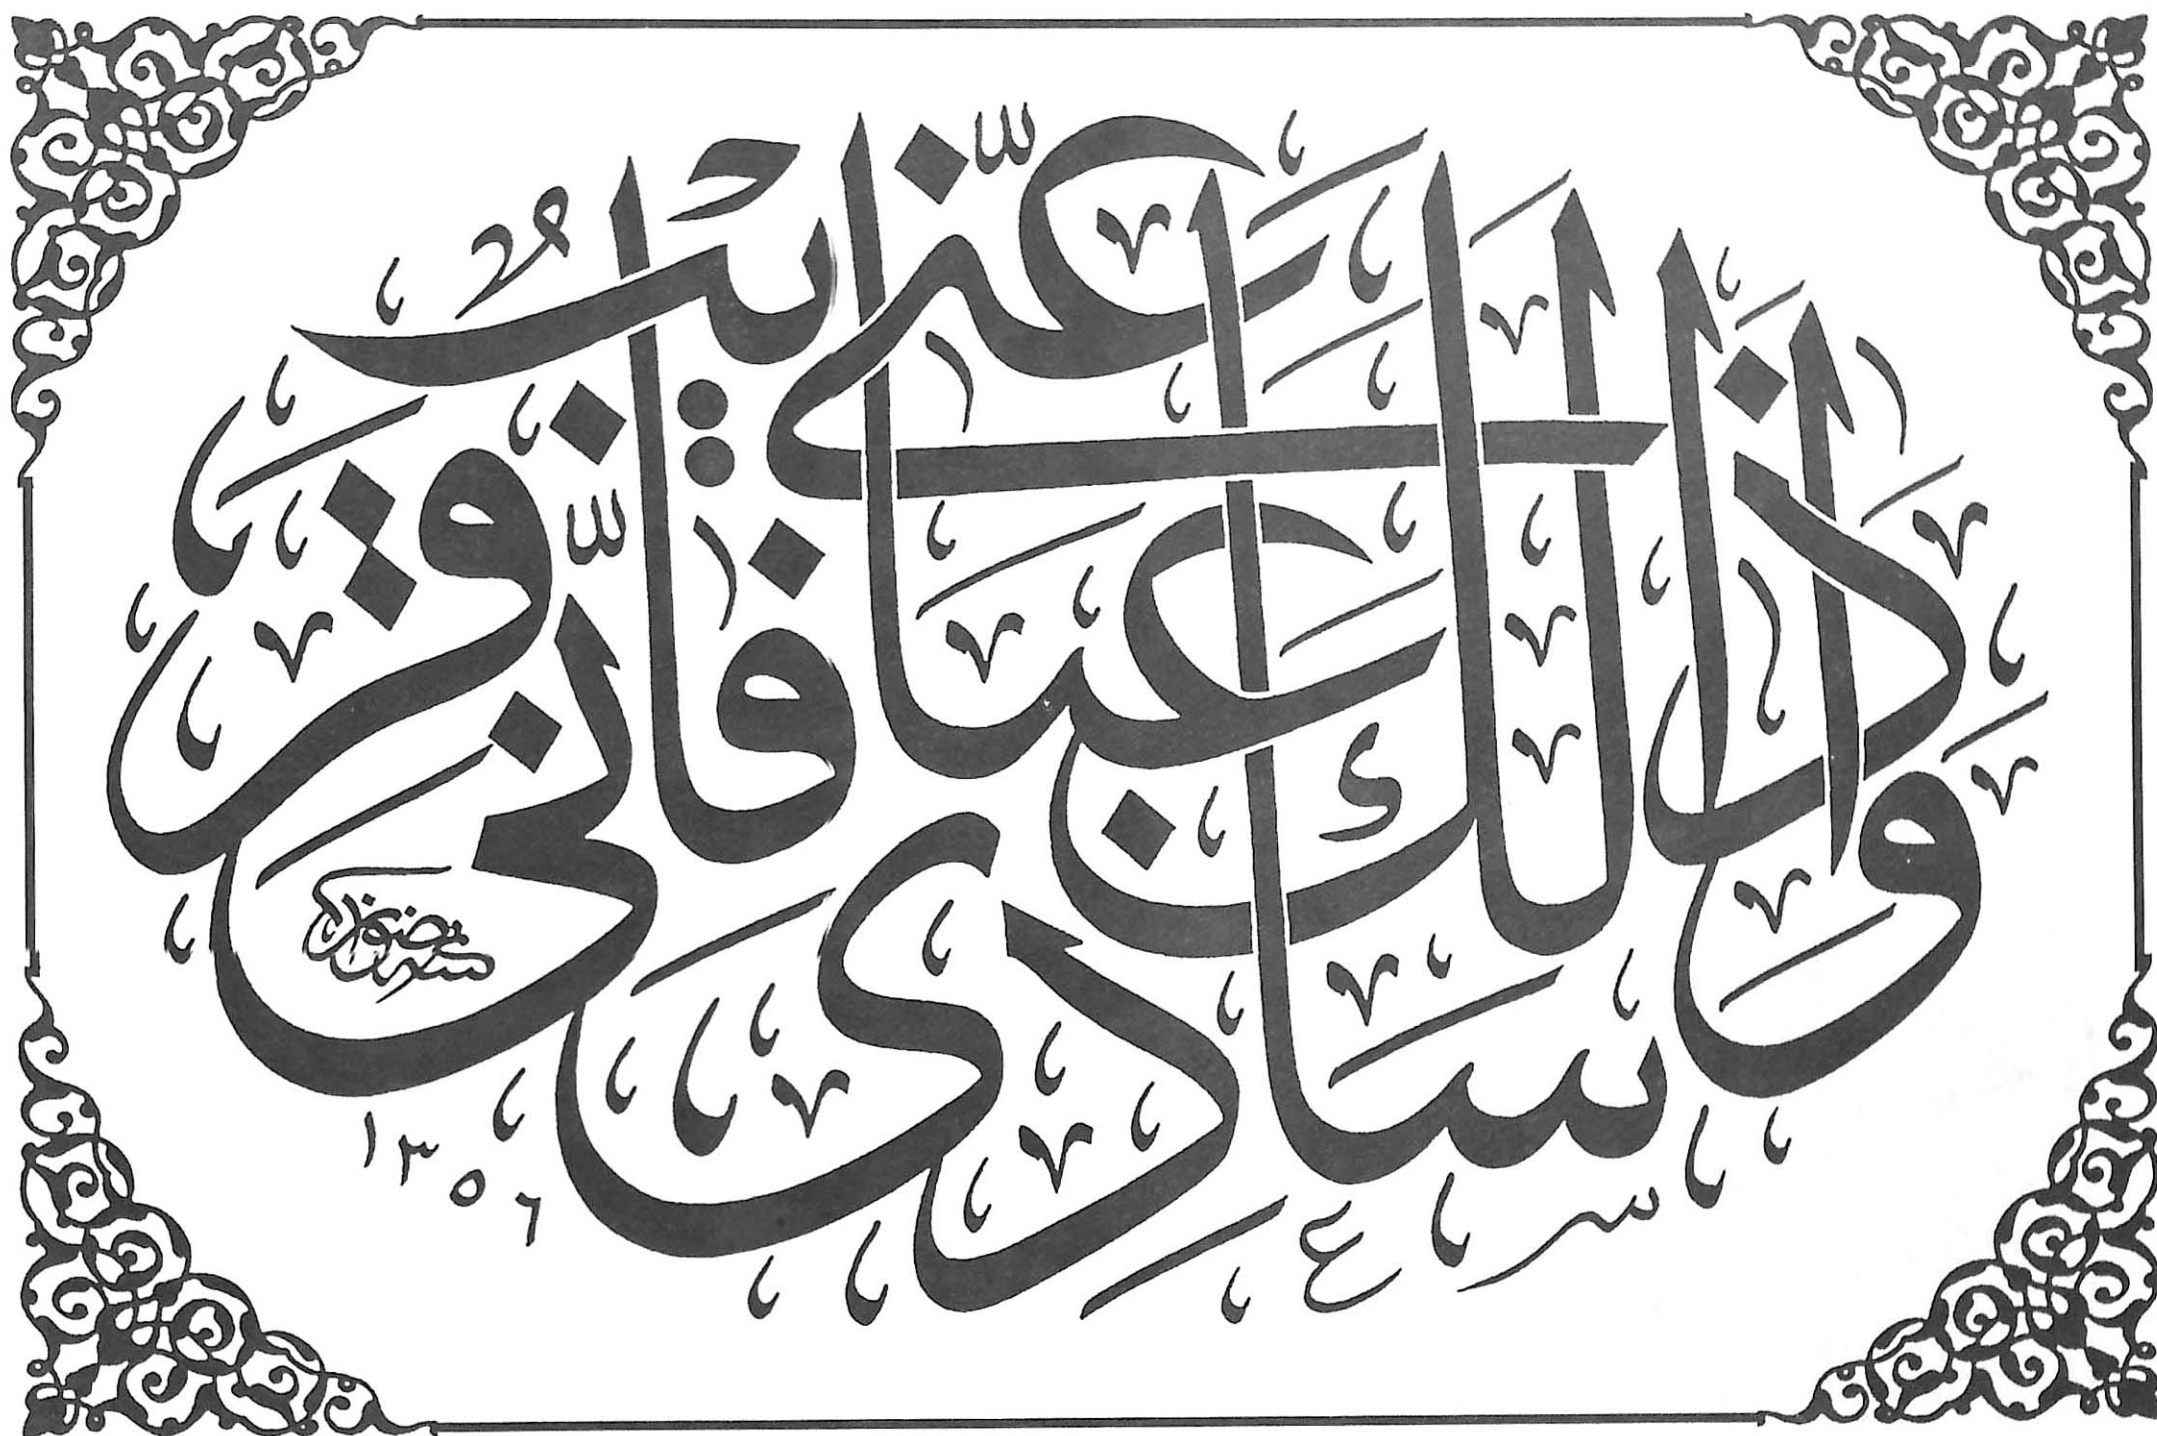 وَإِذَا سَأَلَكَ عِبَادِي عَنِّي فَإِنِّي قَرِيبٌ
١٣٥٦